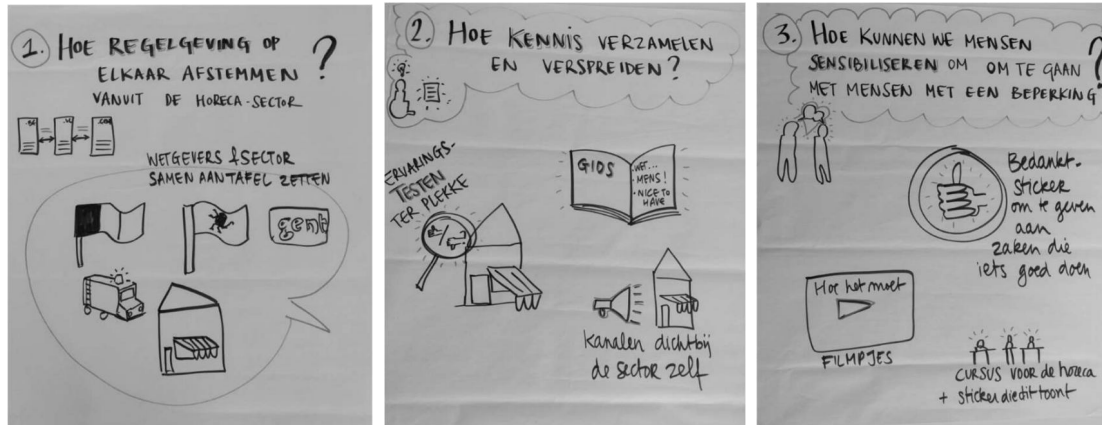 1. HOE REGELGEVING OP
ELKAAR AFSTEMMEN ?
VANUIT DE HORECA-SECTOR
WETGEVERS & SECTOR
SAMEN AAN TAFEL ZETTEN
gent
2. HOE KENNIS VERZAMELEN
EN VERSPREIDEN?
ERVARINGS-
TESTEN
TER PLEKKE
GIDS
- WET...
- MENS!
- NICE TO
HAVE
Kanalen dichtbij
de sector zelf
3. HOE KUNNEN WE MENSEN
SENSIBILISEREN OM OM TE GAAN
MET MENSEN MET EEN BEPERKING?
Bedankt-
sticker
om te geven
aan
zaken die
iets goed doen
Hoe het moet
FILMPJES
CURSUS VOOR de horeca
+ sticker die dit toont